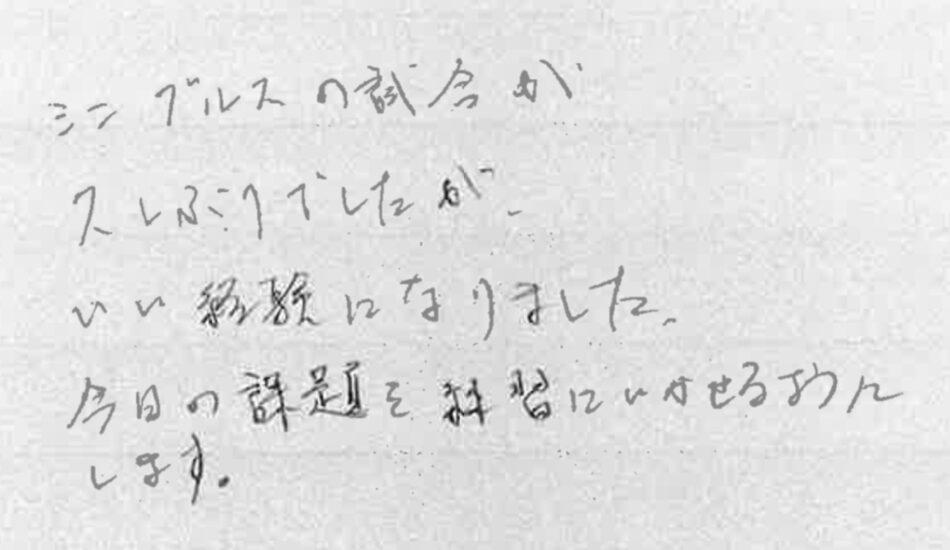 ミニ ブルスの試合が
久しぶりでしたが、
いい経験になりました。
今日の課題を練習にいかせるように
します。